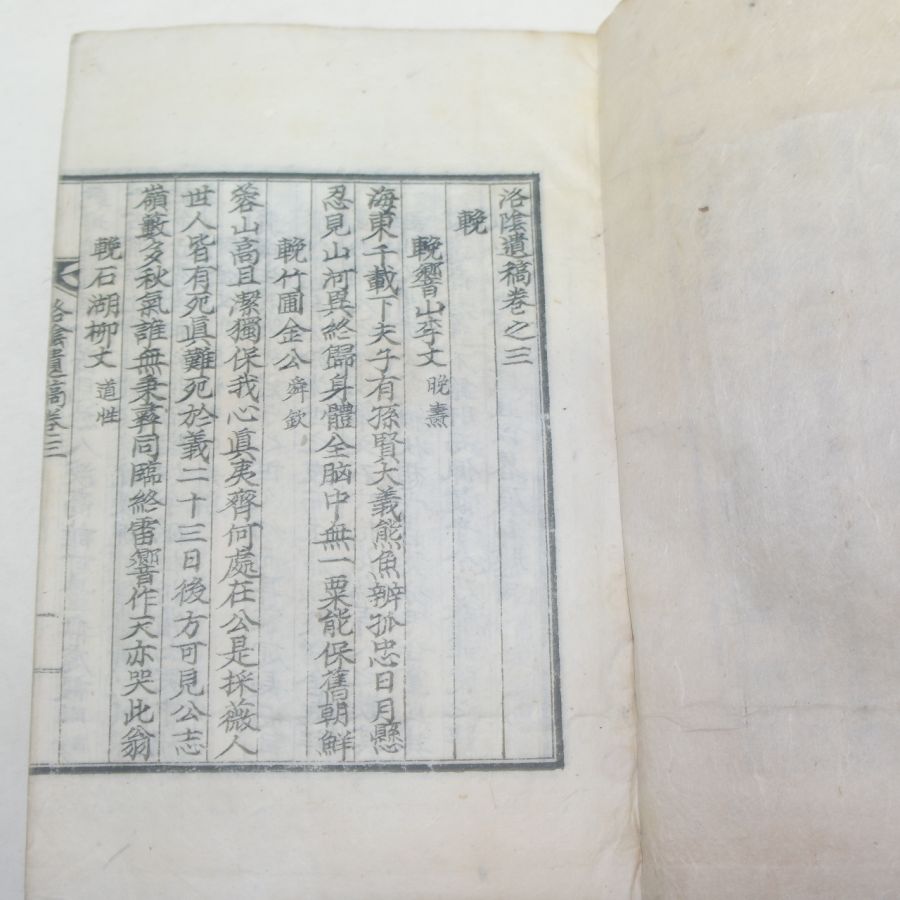 洛陰遺稿卷之三
輓
輓響山李丈 晩燾
海東千載下夫子有孫賢大義熊魚辨孤忠日月懸
忍見山河異終歸身體全脑中無一粟能保舊朝鮮
輓竹圃金公 舜欽
蓉山高且潔獨保我心眞夷齊何處在公是採薇人
世人皆有死眞難死於義二十三日後方可見公志
嶺藪多秋氣誰無秉彛同臨終雷響作天亦哭此翁
輓石湖柳丈 道性
洛陰遺稿卷三